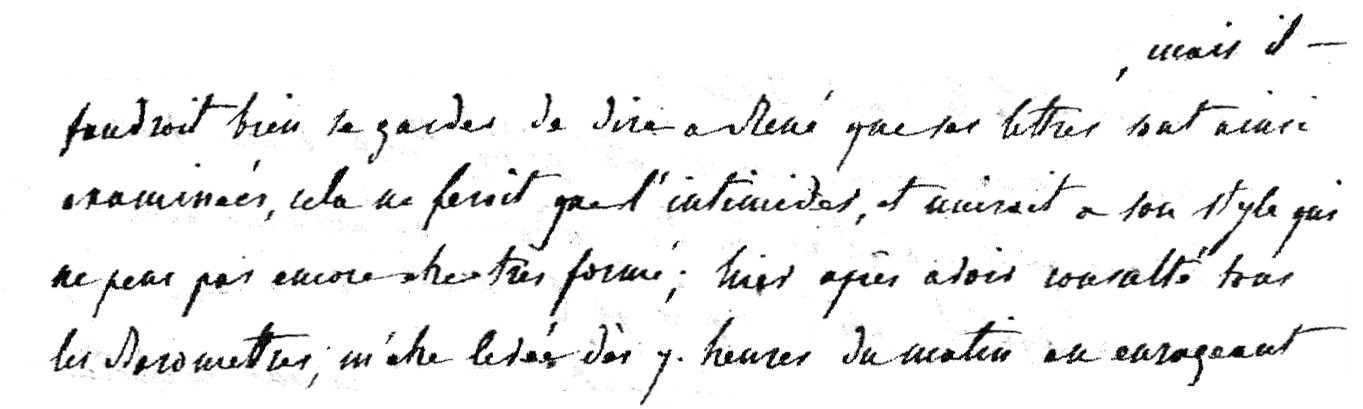 , mais il —
faudroit bien se garder de dire a René que ses lettres sont ainsi
examinées, cela ne feroit que l'intimider, et nuiroit a son style qui
ne peut pas encore etre très formé ; hier après avoir consulté tous
les Barometres, m'etre levée dès 7. heures du matin en enrageant